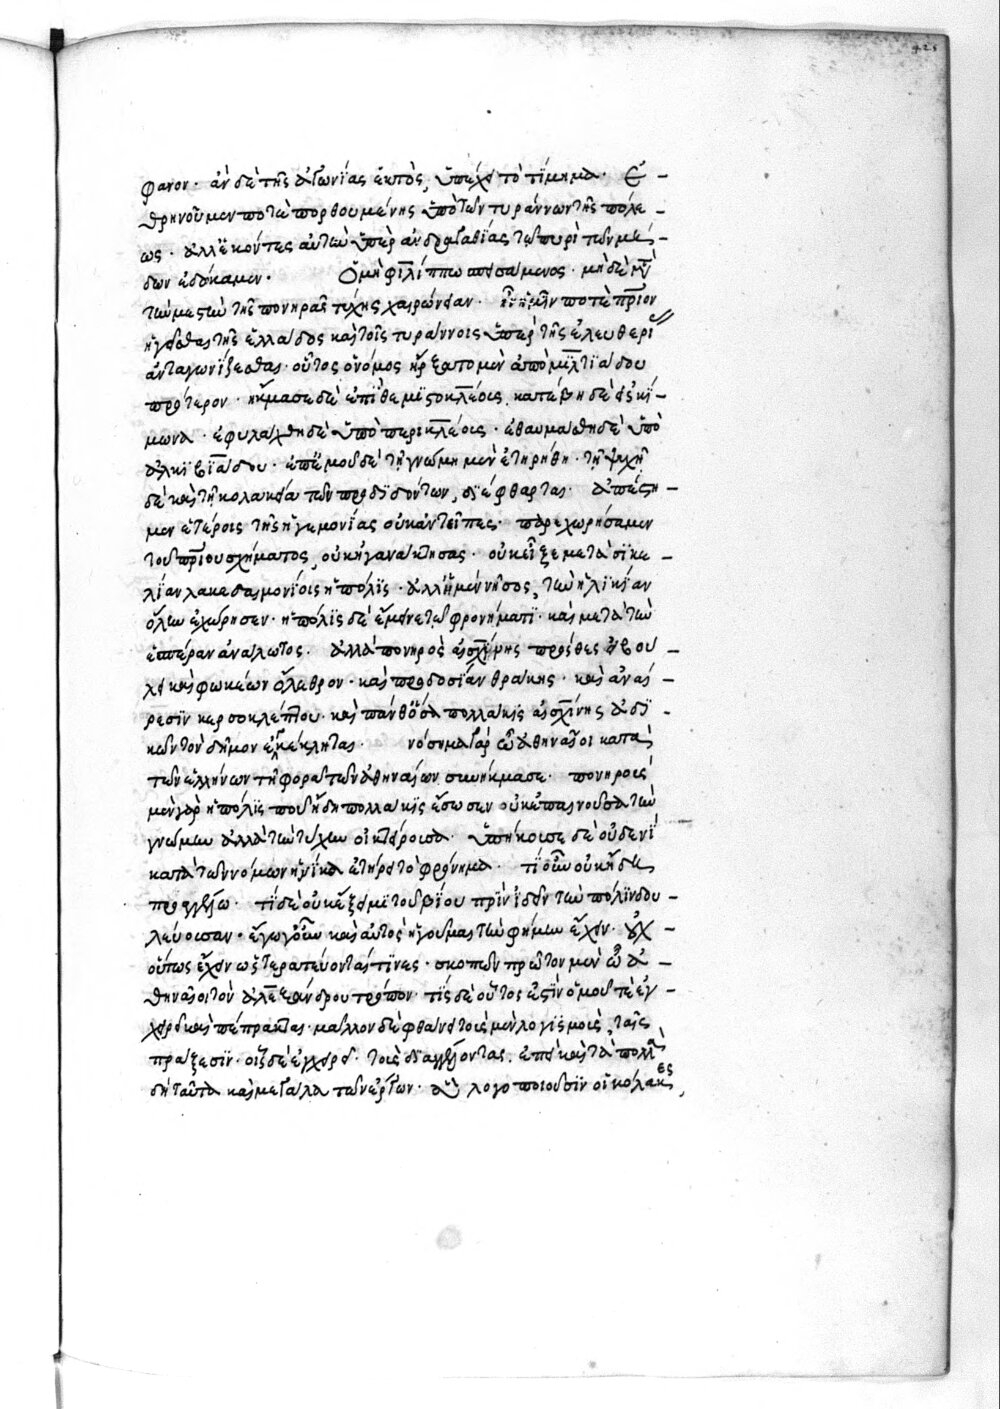 φανον. ἂν δὲ τῆς ἀγωνίας ἐκτὸς, ὑπέχει τὸ τίμημα. ἐ
θρηνοῦμεν ποτὲ πορθουμένης ὑπὸ τῶν τυράννων τῆς πόλε
ως. ἀλλ' ἥκοντες αὐτῶν ὑπὲρ ἀνδραγαθίας τῷ πυρὶ τῶν μή
δων ἐδώκαμεν. Ὁ μὴ φιλίππω πεισάμενος. μὴ δὲ
τῶν μετὼ τῆς πονηρᾶς τύχης χαιρώνειαν. ἦν ἡμῖν ποτὲ πάτριον
ἡγεῖσθαι τῆς ἑλλάδος καὶ τοῖς τυράννοις ὑπὲρ τῆς ἐλευθερί
ἀνταγωνίζεσθαι. οὗτος ὁ νόμος ἤρξατο μὲν ἀπὸ μιλτιάδου
πρότερον. ἤκμασε δὲ ἐπὶ θεμιστοκλέους. κατέβη δὲ εἰς κί
μωνα. ἐφυλάχθη δὲ ὑπὸ περικλέους. ἐθαυμάσθη δὲ ὑπὸ
ἀλκιβιάδου. ἐπ' ἐμοῦ δὲ τῇ γνώμῃ μὲν ἐτηρήθη. τῇ τύχῃ
δὲ καὶ τῇ κολακείᾳ τῶν προδιδόντων, διέφθαρται. ἀπέστη
μεν ἑτέροις τῆς ἡγεμονίας οὐκ ἀντεῖπες. παρεχωρήσαμεν
τοῦ πατρίου σχήματος, οὐκ ἠγανάκτησας. οὐκ εἶξε μετὰ σικε
λίαν λακεδαιμονίοις ἡ πόλις. ἀλλ' ἡ μὲν νῆσος, τὴν ἡλικίαν
ὅλην ἐχώρησεν. ἡ πόλις δὲ ἔμεινε τῷ φρονήματι. καὶ μετὰ τὴν
ἑσπέραν ἀνάλωτος. ἀλλὰ πονηρὸς αἰσχίνης προσθεὶς εὐβου
λει καὶ φωκέων ὄλεθρον. καὶ προδοσίαν θράκης. καὶ ἀναί
ρεσιν κερσοκλέπτου. καὶ πάνθ' ὅσα πολλάκις αἰσχίνης ἀδι
κῶν τὸν δῆμον ἐγκέκληται. νόσημα γὰρ ὦ ἀθηναῖοι κατὰ
τῶν ἑλλήνων τῇ φορᾷ τῶν ἀθηναίων συνήκμασε. πονηροὶ
μὲν γὰρ ἡ πόλις που ἤδη πολλάκις ἔσωσεν οὐκ ἐπαινοῦσα τὴν
γνώμην ἀλλὰ τὴν τύχην οἰκτείρουσα. ὑπήκουσε δὲ οὐδενὶ
κατὰ τῶν νόμων ἡνίκα ἐτήρει τὸ φρόνημα. τί οὖν οὐκ ἤδει
πρὸ ἐξίω. τί δὲ οὐκ ἐξῄει με τοῦ βίου πρὶν ἰδεῖν τὴν πόλιν δου
λεύουσαν. ἐγὼ γοῦν καὶ αὐτὸς ἡγοῦμαι τὴν φήμην ἔχειν. οὐχ
οὕτως ἔχειν ὡς τερατεύονταί τινες. σκοπῶν πρῶτον μὲν ὦ ἀ
θηναῖοι τὸν ἀλεξάνδρου τρόπον. τίς δὲ οὗτος ἐστὶν ὁμοῦ τε ἐγ
χειρεῖ καὶ πέπρακται. μᾶλλον δὲ φθάνει τοὺς μὲν λογισμοὺς, ταῖς
πράξεσιν. οἷς δὲ ἐγχειρεῖ. τοὺς διαγγέλλοντας. ἐπεὶ καὶ τὰ πολλὰ
δὴ ταῦτα καὶ μεγάλα τῶν ἔργων. ἃ λογοποιοῦσιν οἱ κόλακες,